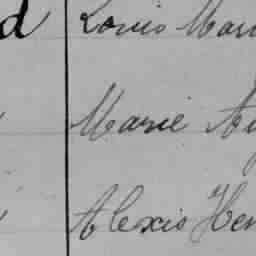 d Louis Mar
Marie Au
Alexis Hen